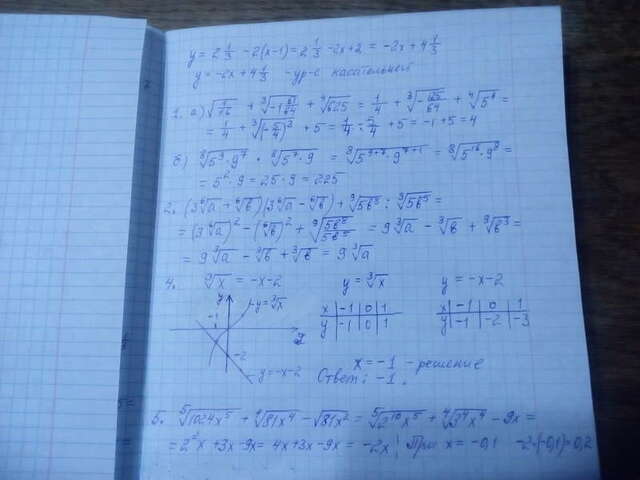 y = 2 1/3 - 2(x-1) = 2 1/3 - 2x + 2 = -2x + 4 1/3
y = -2x + 4 1/3 - ур-е касательной
1. а) √(1/16) + ∛(-1 61/64) + ⁴√625 = 1/4 + ∛(-125/64) + ⁴√5⁴ =
= 1/4 + ∛(-5/4)³ + 5 = 1/4 - 5/4 + 5 = -1 + 5 = 4
б) ⁸√(5⁹·9⁷) · ⁸√(5⁷·9) = ⁸√(5⁹⁺⁷·9⁷⁺¹) = ⁸√(5¹⁶·9⁸) =
= 5²·9 = 25·9 = 225
2. (3⁶√a + ⁶√b)(3⁶√a - ⁶√b) + ⁹√5b⁸ : ⁹√5b⁵ =
= (3⁶√a)² - (⁶√b)² + ⁹√(5b⁸/5b⁵) = 9∛a - ∛b + ⁹√b³ =
= 9∛a - ∛b + ∛b = 9∛a
4. ∛x = -x-2 y = ∛x y = -x-2
y
y = ∛x
-1
-2
y = -x-2
x -1 0 1
y -1 0 1
x -1 0 1
y -1 -2 -3
x = -1 - решение
Ответ: -1.
5. ⁵√1024x⁵ + ⁴√81x⁴ - √81x² = ⁵√2¹⁰x⁵ + ⁴√3⁴x⁴ - 9x =
= 2²x + 3x - 9x = 4x + 3x - 9x = -2x; При x = -0,1 -2·(-0,1) = 0,2